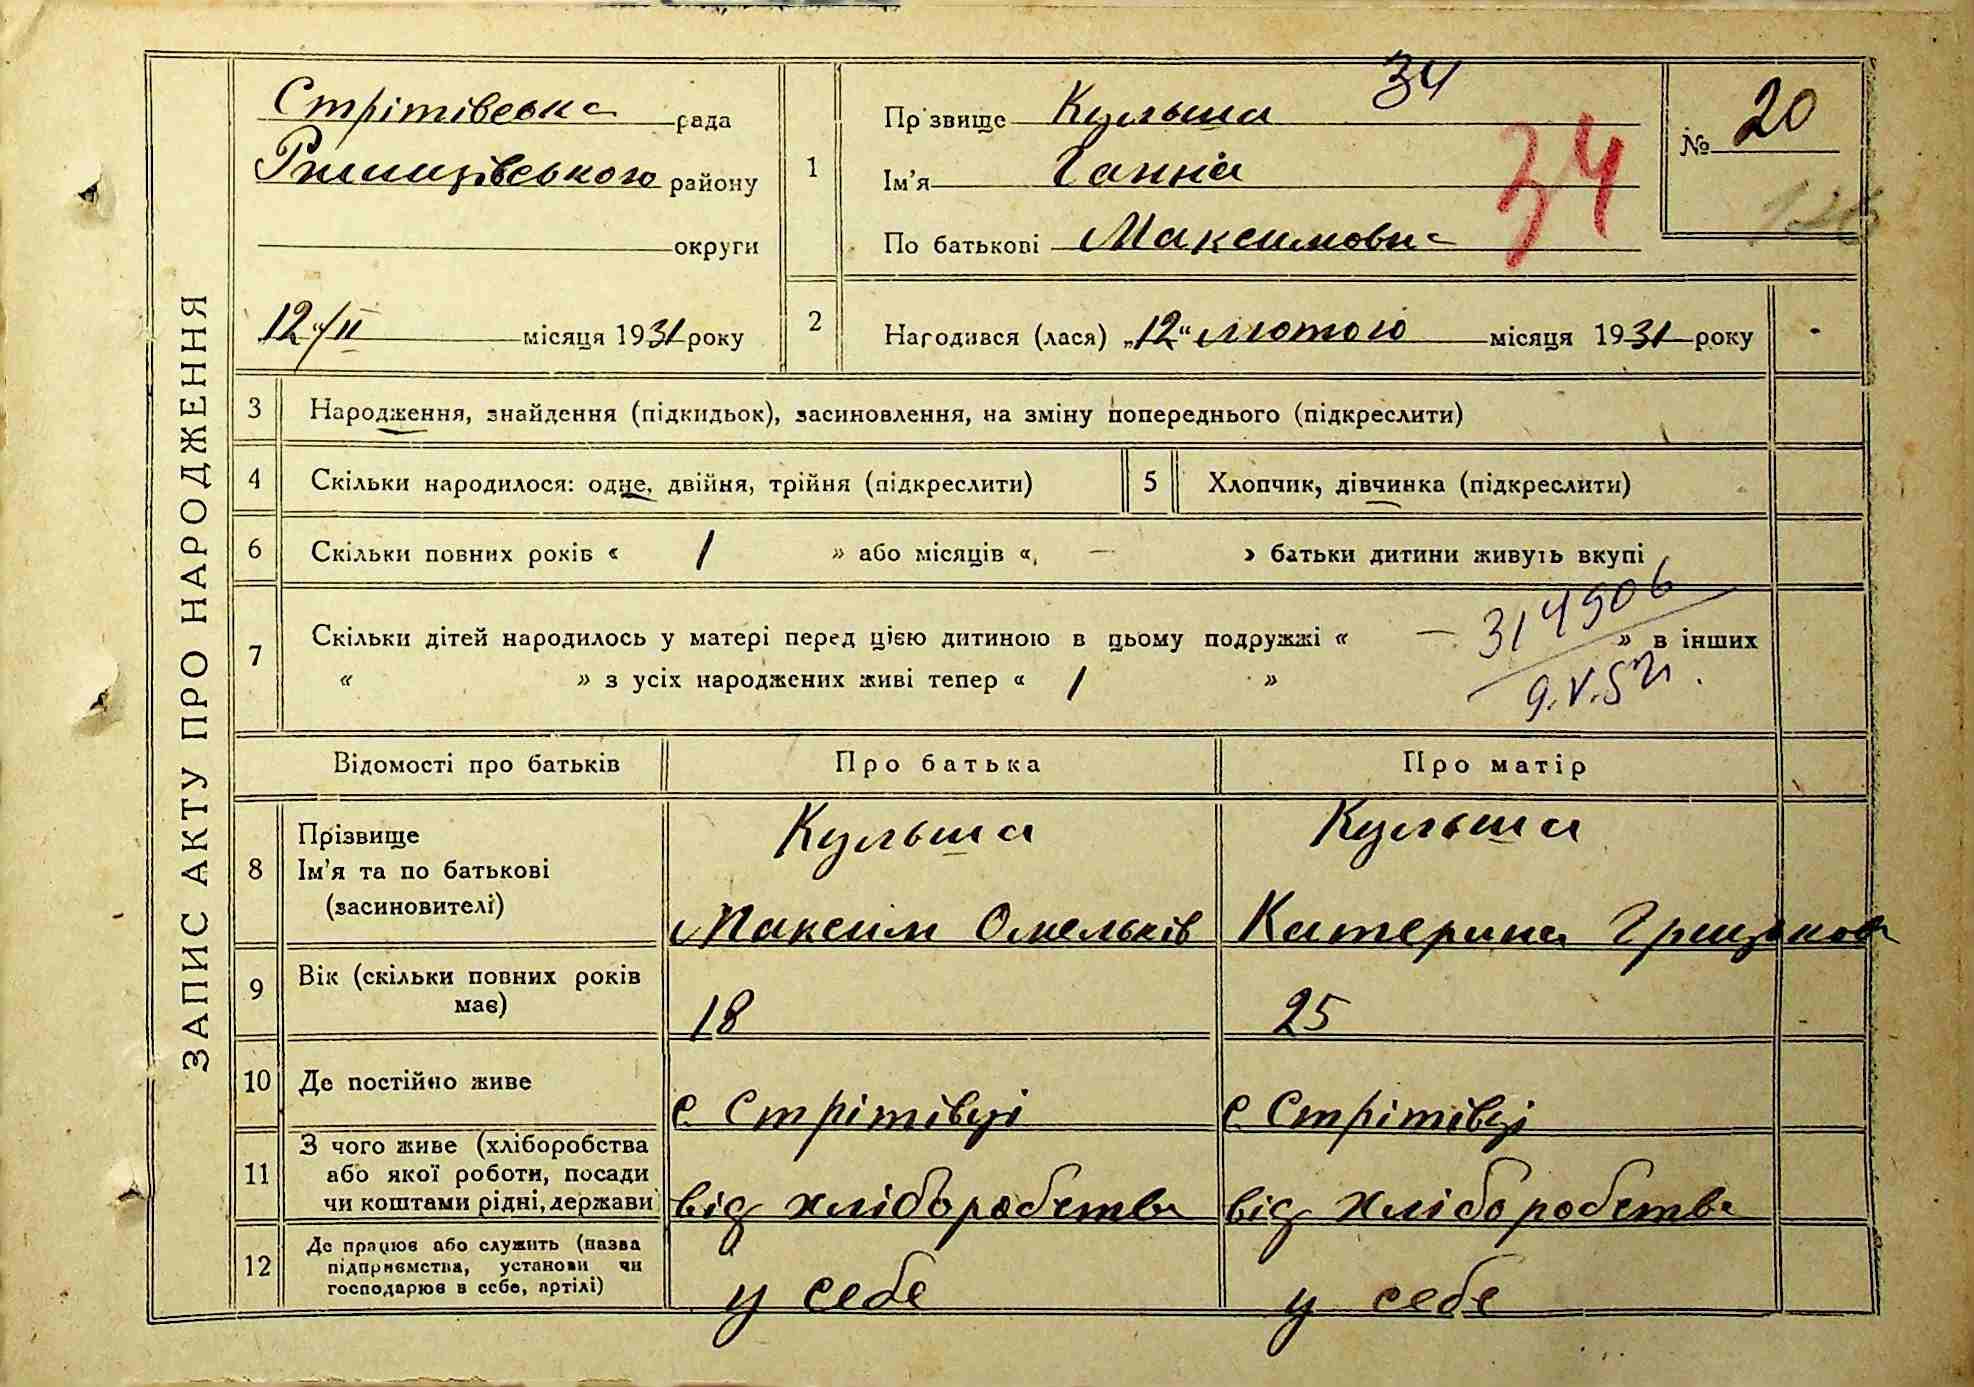 ЗАПИС АКТУ ПРО НАРОДЖЕННЯ
Стрітівська рада
Ржищівського району
округи
12/II місяця 1931 року
1
Прізвище Кульша 34
Ім'я Ганна
По батькові Максимовна
34
№ 20
126
2
Народився (лася) „12“ лютого місяця 1931 року
3 Народження, знайдення (підкидьок), засиновлення, на зміну попереднього (підкреслити)
4 Скільки народилося: одне, двійня, трійня (підкреслити)
5 Хлопчик, дівчинка (підкреслити)
6 Скільки повних років « 1 » або місяців « — » батьки дитини живуть вкупі
7 Скільки дітей народилось у матері перед цією дитиною в цьому подружжі « — » в інших
« » з усіх народжених живі тепер « 1 »
314906
9.V.52
Відомості про батьків Про батька Про матір
8 Прізвище
Ім'я та по батькові
(засиновителі)
Кульша
Максим Омельків
Кульша
Катерина Грицьков
9 Вік (скільки повних років
має)
18 25
10 Де постійно живе с Стрітівці с Стрітівці
11 З чого живе (хліборобства
або якої роботи, посади
чи коштами рідні, держави
від хліборобства від хліборобства
12 Де працює або служить (назва
підприємства, установи чи
господарює в себе, артілі)
у себе у себе